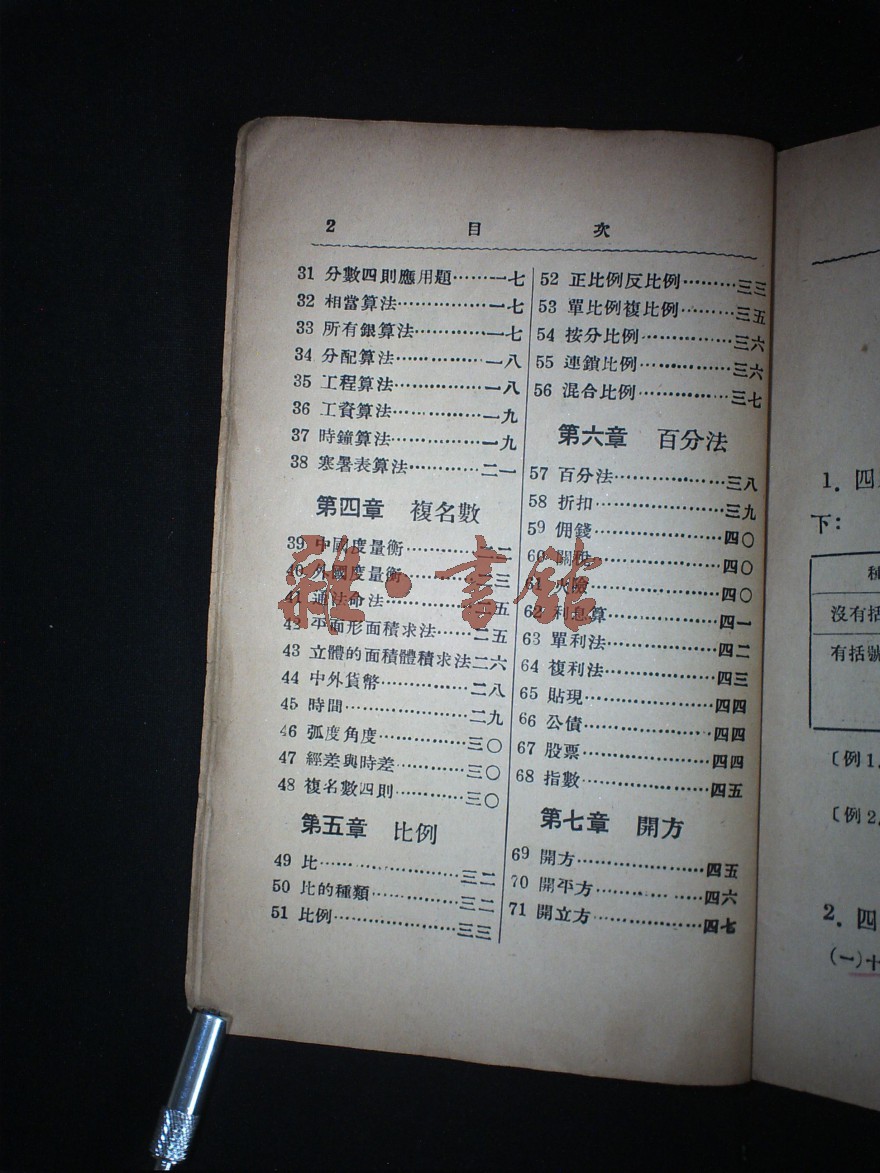 2 目 次
31 分數四則應用題……一七
32 相當算法……一七
33 所有銀算法……一七
34 分配算法……一八
35 工程算法……一八
36 工資算法……一九
37 時鐘算法……一九
38 寒暑表算法……二一
第四章 複名數
39 中國度量衡……二二
40 外國度量衡……二三
41 通法命法……二五
42 平面形面積求法……二五
43 立體的面積體積求法二六
44 中外貨幣……二八
45 時間……二九
46 弧度角度……三〇
47 經差與時差……三〇
48 複名數四則……三〇
第五章 比例
49 比……三二
50 比的種類……三二
51 比例……三三
52 正比例反比例……三三
53 單比例複比例……三五
54 按分比例……三六
55 連鎖比例……三六
56 混合比例……三七
第六章 百分法
57 百分法……三八
58 折扣……三九
59 佣錢……四〇
60 關稅……四〇
61 火險……四〇
62 利息算……四一
63 單利法……四二
64 複利法……四三
65 貼現……四四
66 公債……四四
67 股票……四四
68 指數……四五
第七章 開方
69 開方……四五
70 開平方……四六
71 開立方……四七
雜·書館
1. 四
下：
種
沒有括
有括號
〔例1.
〔例2.
2. 四
(一)十